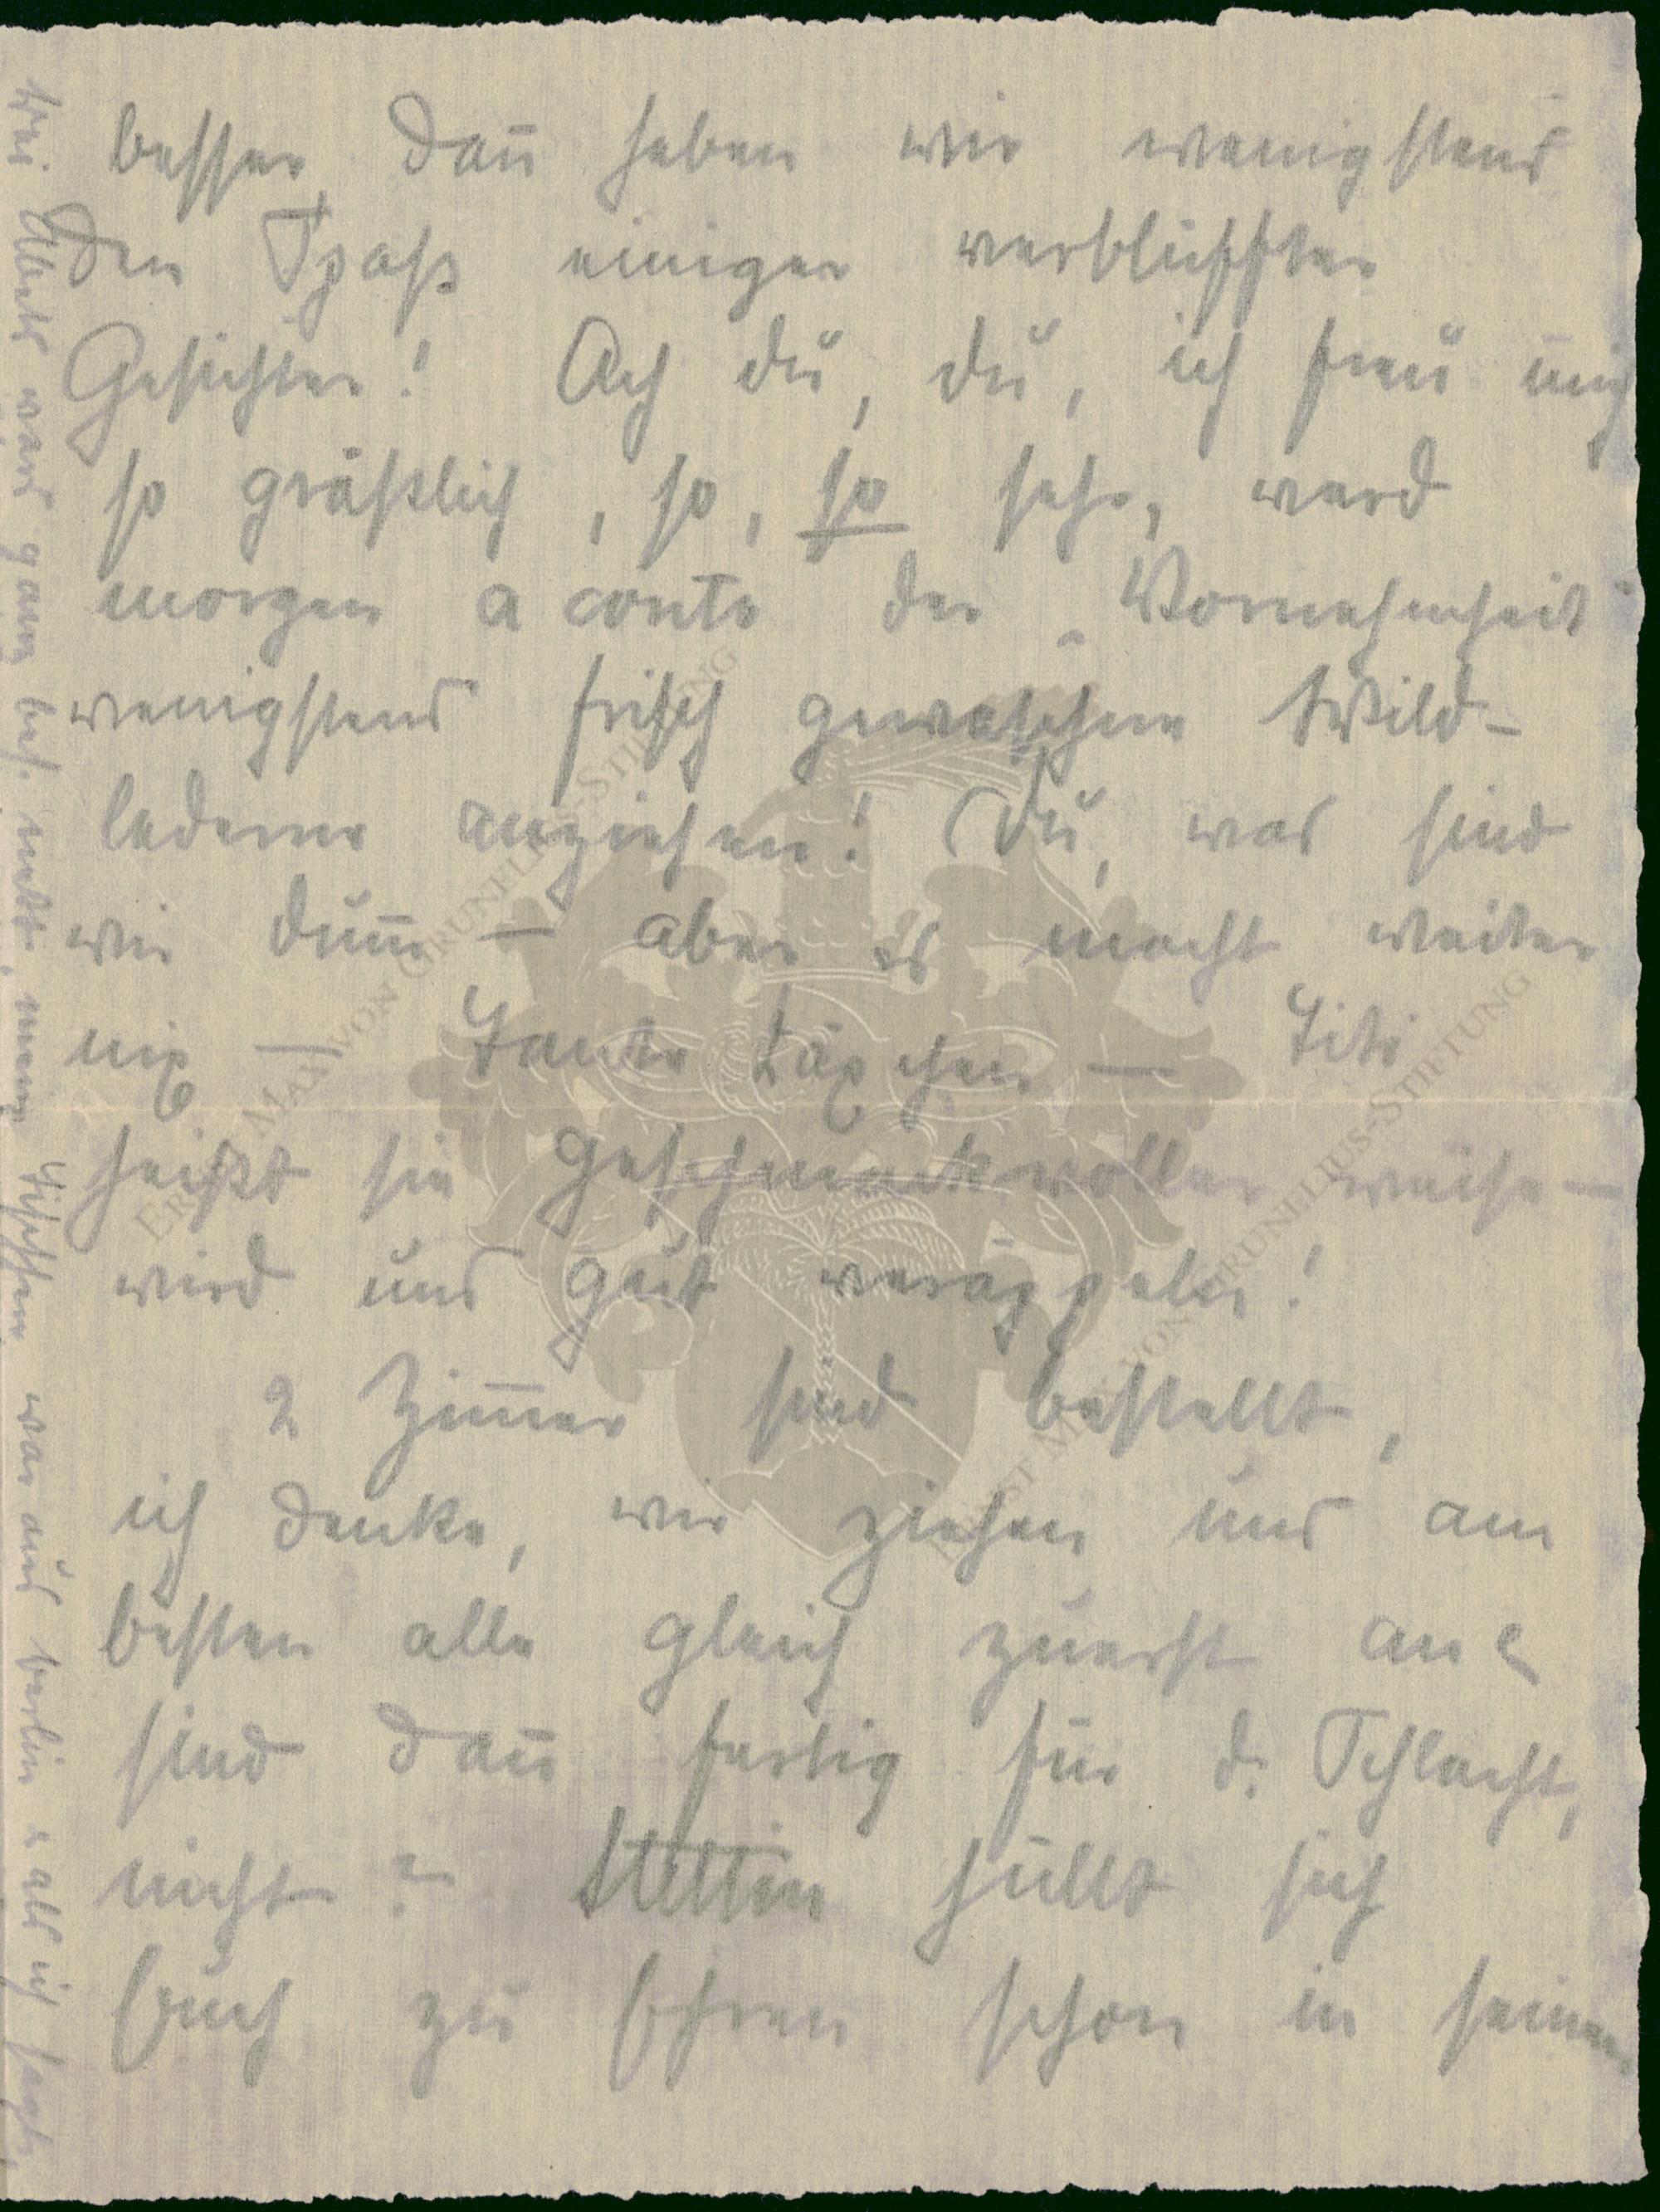 besser, dan̄ haben wir wenigstens
den Spaß einiger verblüffter
Gesichter! Ach du, du, ich freu mich
so gräßlich, so, so sehr, werd
morgen a conto der Vornehmheit
wenigstens frisch gewaschne Wild-
lederne anziehen! (Du, was sind
wir dum̄ — aber es macht weiter
nix — Tante Läpchen — Titi
heißt sie geschmackvoller weise —
wird uns gut veräppeln!
2 Zim̄er sind bestellt,
ich denke, wir ziehen uns am
besten alle gleich zuerst an &
sind dan̄ fertig für d. Schlacht,
nicht? Stettin hüllt sich
Euch zu Ehren schon in seinen
der Abend war ganz bes. nett, mein Tischherr war aus Berlin & als ich sagte,
ERNST MAX VON GRUNELIUS-STIFTUNG
ERNST MAX VON GRUNELIUS-STIFTUNG